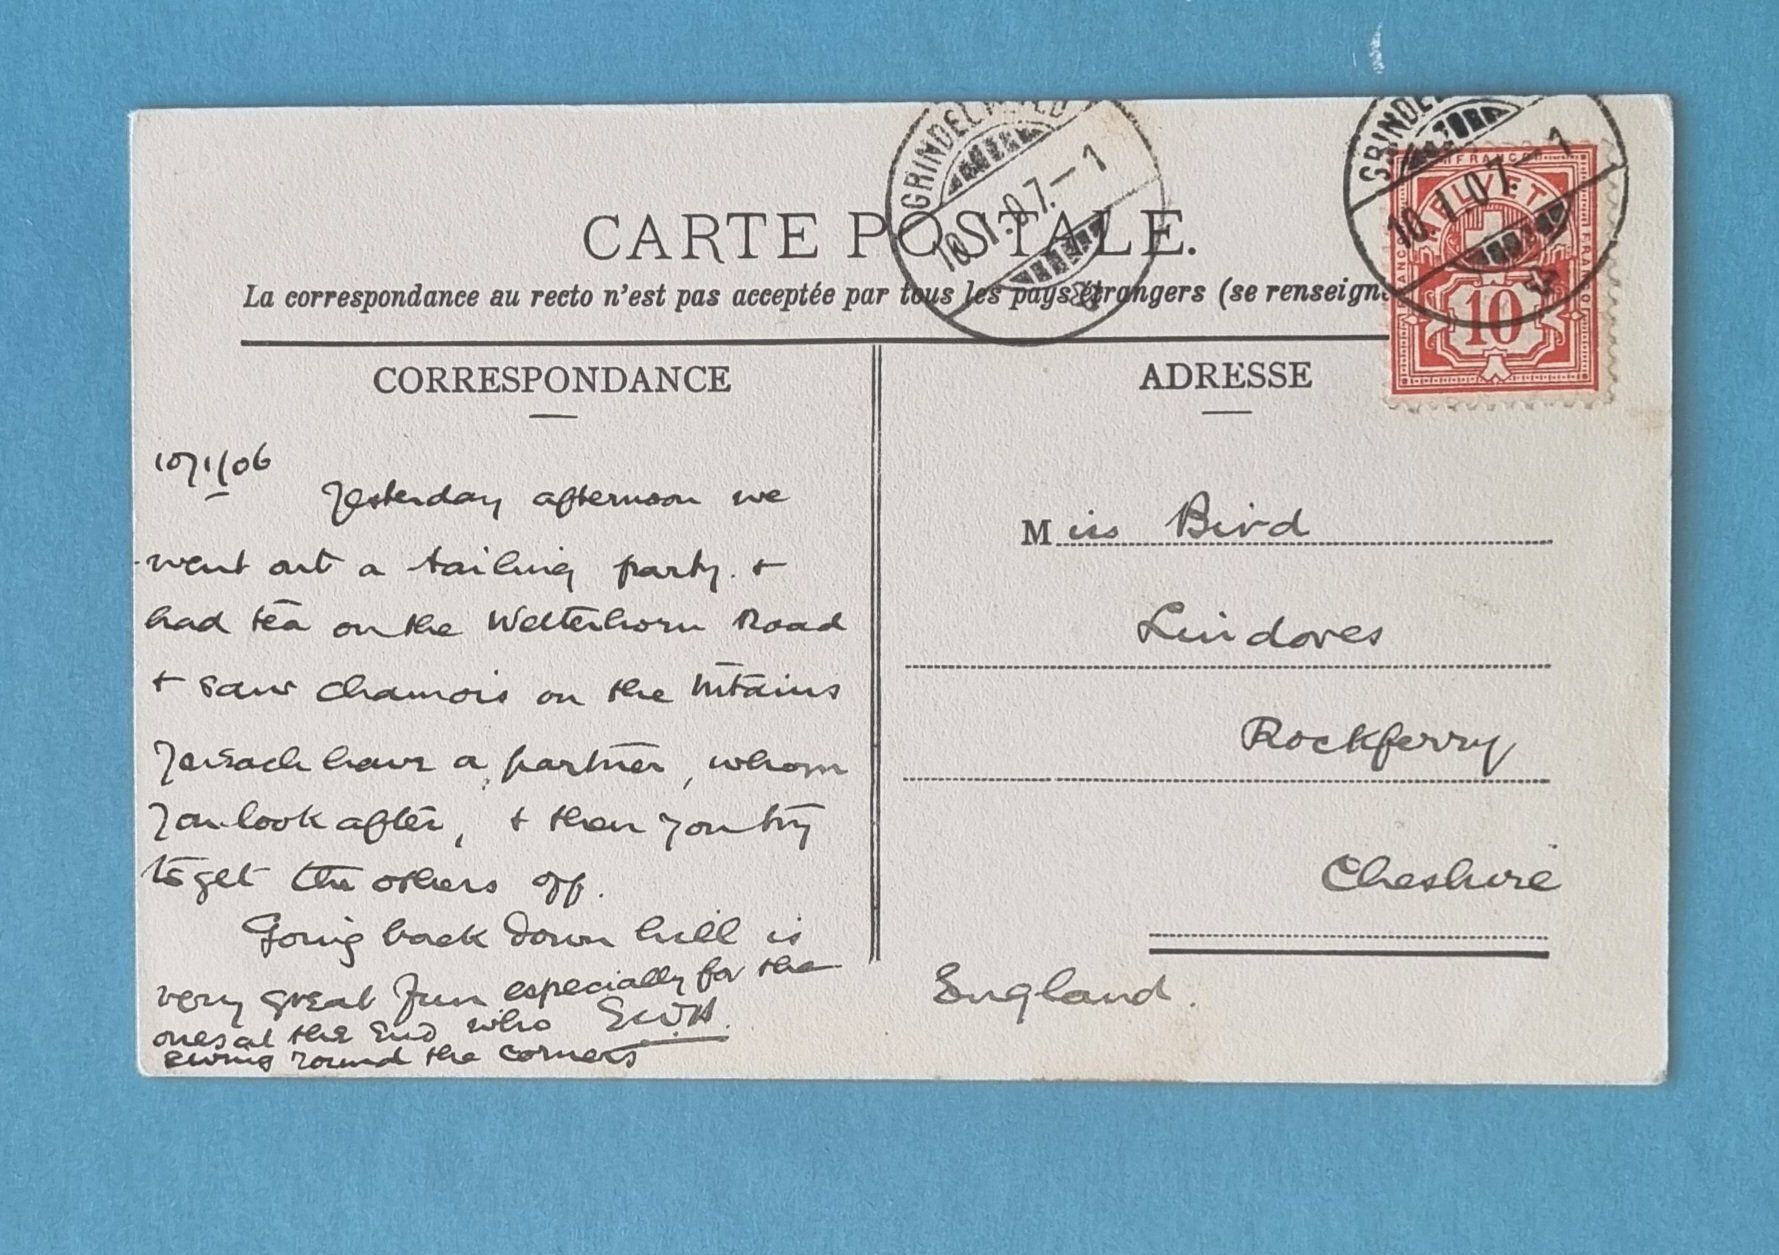 GRINDELWALD
10.I.07.—1
GRINDEL
10.I.07.—1
FRANCO
HELVETIA
FRANCO
10
CARTE POSTALE.
La correspondance au recto n'est pas acceptée par tous les pays étrangers (se renseign
CORRESPONDANCE
ADRESSE
10/1/06
Yesterday afternoon we
went out a tailing party. +
had tea on the Wetterhorn Road
+ saw chamois on the mtains
You each have a partner, whom
you look after, + then you try
to get the others off.
Going back down hill is
very great fun especially for the
ones at the end who
swing round the corners
E.W.H.
Miss Bird
Lindores
Rockferry
Cheshire
England.